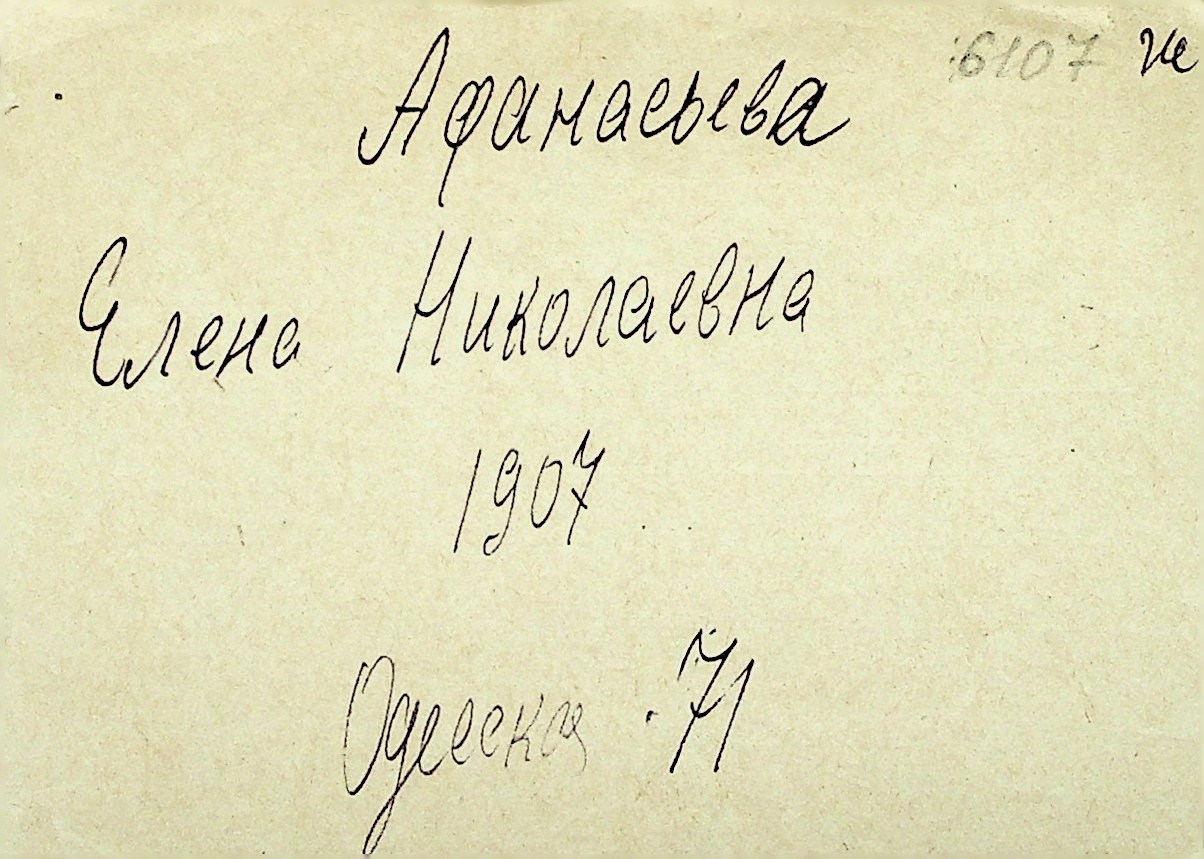 6107 Ж
Афанасьева
Елена Николаевна
1907
Одесская 71